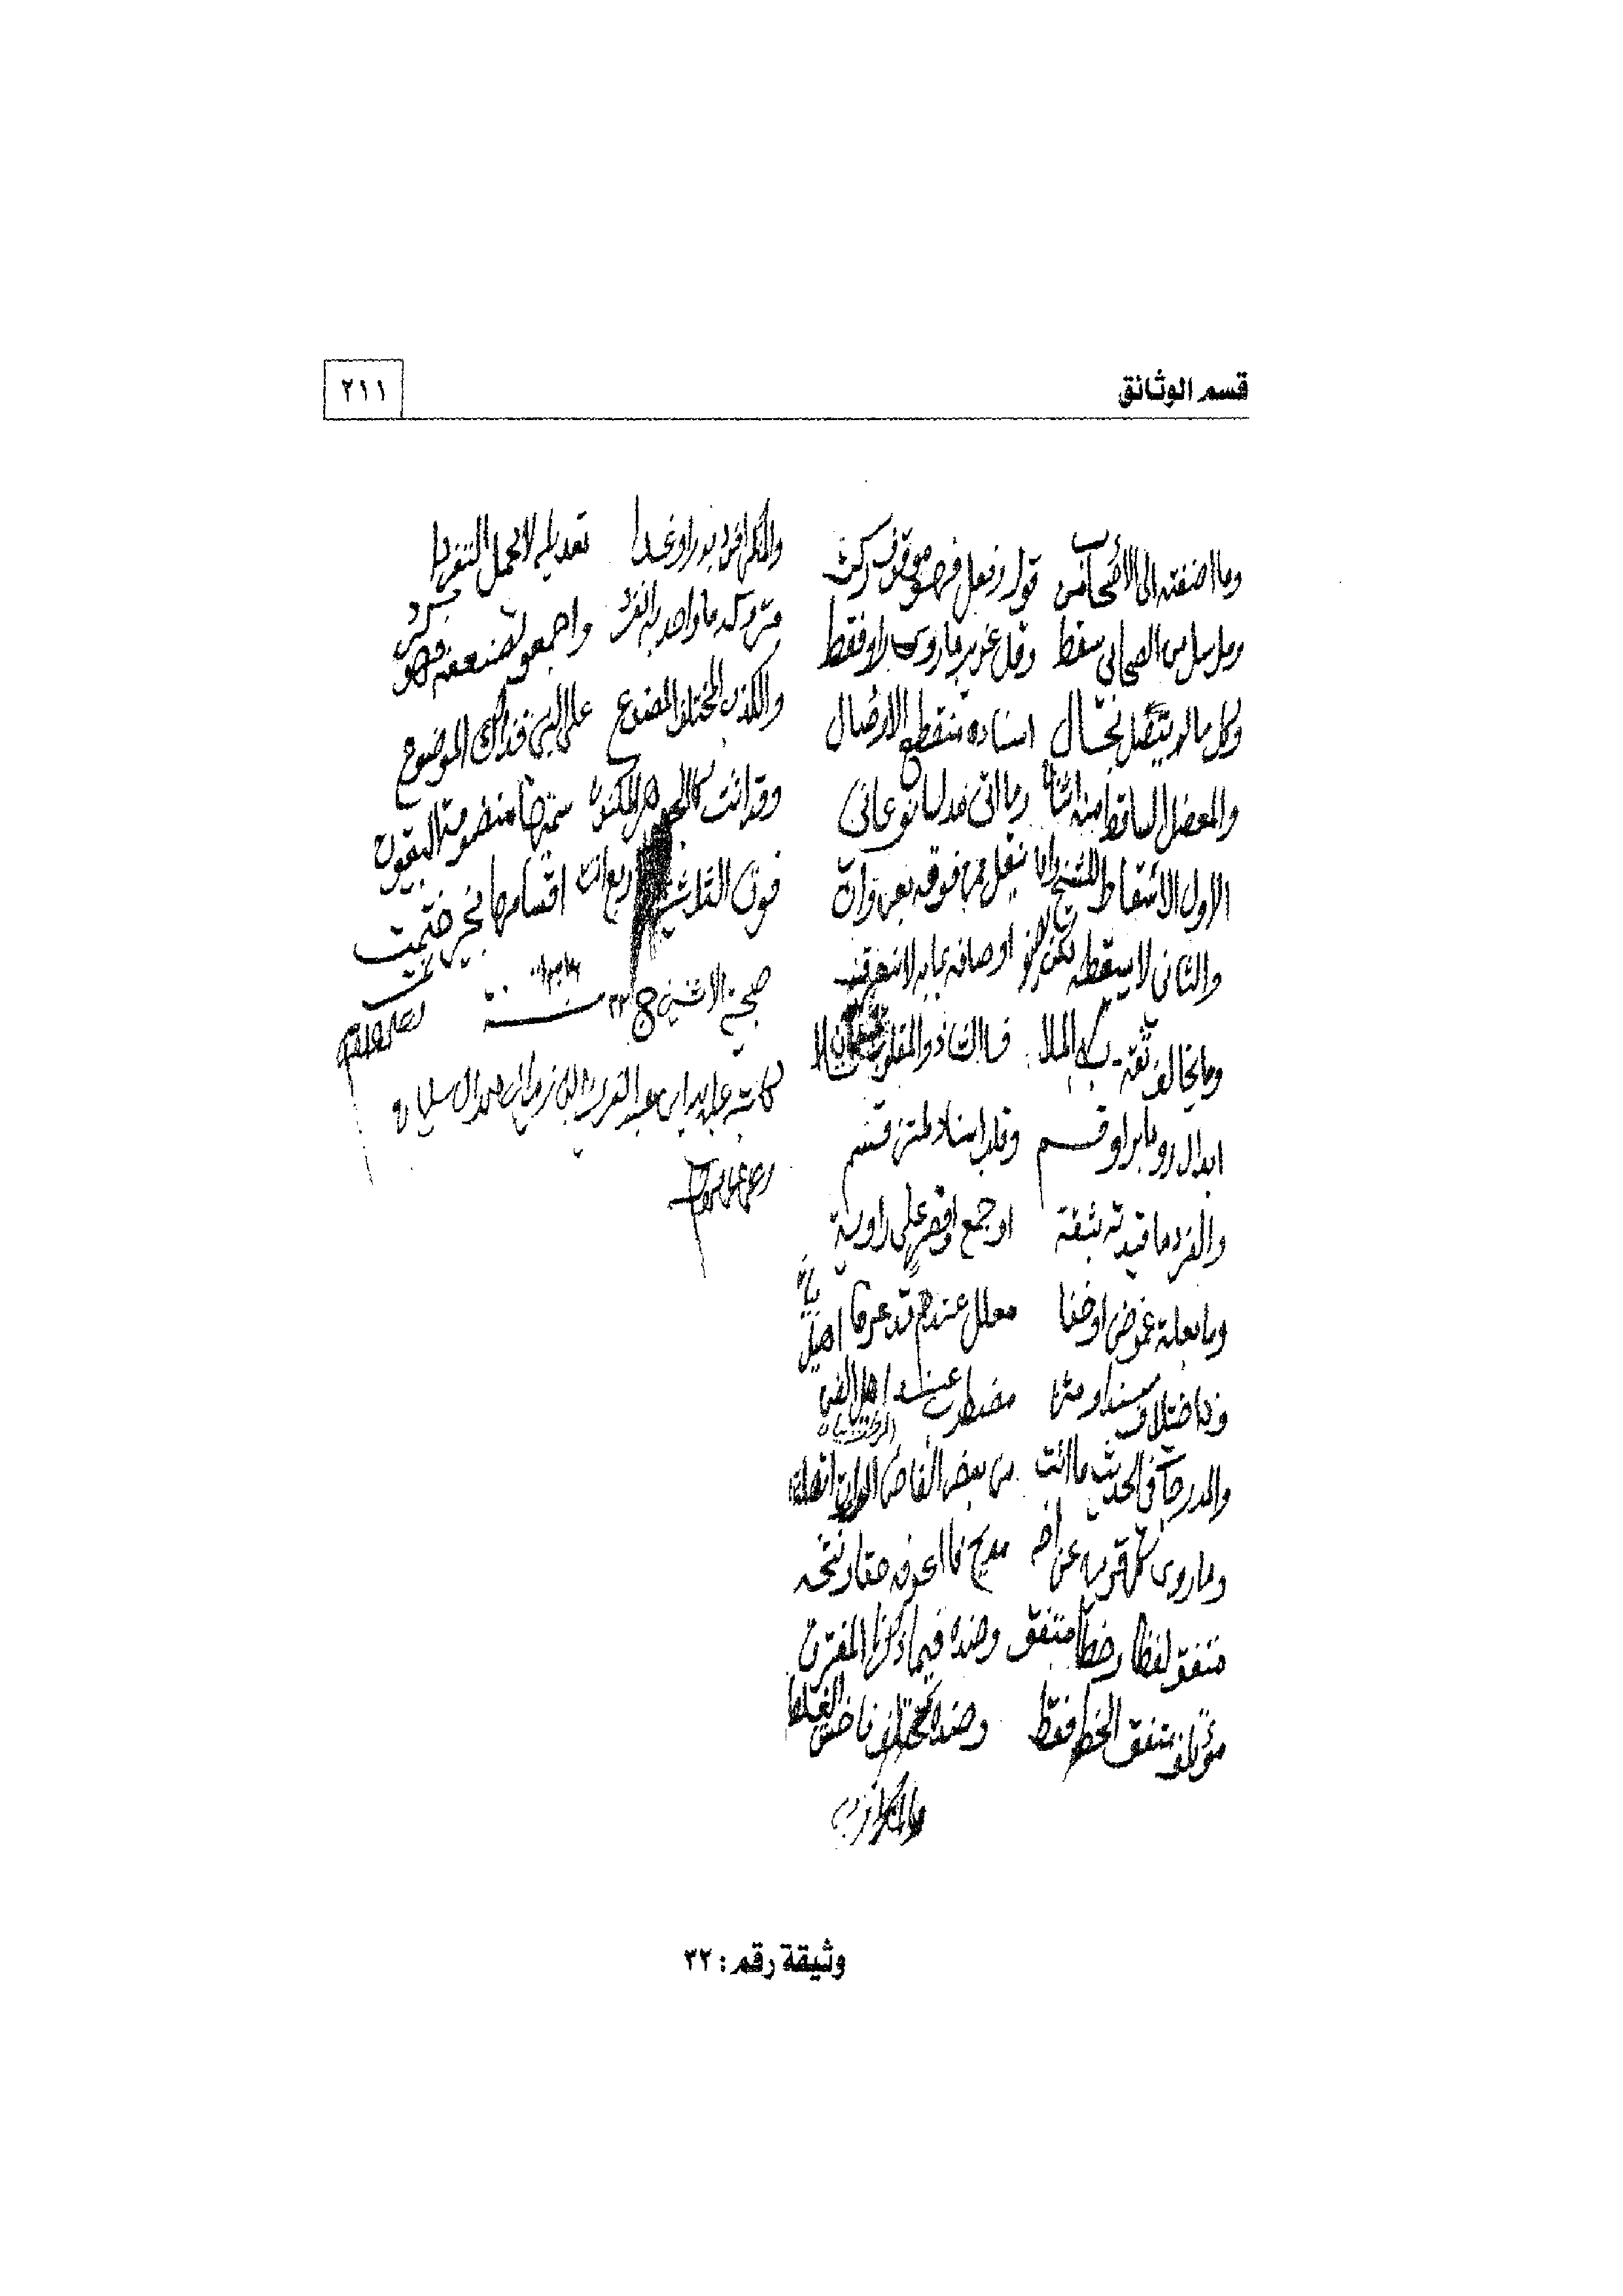 قسم الوثائق
٢١١
وما اضفته الى الأصحاب من قول وفعل فهو موقوف زكن
ومرسل من الصحابي سقط وقل غريب ما روى راو فقط
وكل مالم يتصل بحال اسناده منقطع الاوصال
والمعضل الساقط منه اثنان وما اتى مدلسا نوعان
الاول الاسقاط للشيخ وان ينقل عمن فوقه بعن وان
والثاني لا يسقطه لكن يصف اوصافه بما به لا ينعرف
وما يخالف ثقة به الملا فالشاذ والمقلوب تلا
ابدال راو ما براو قسم وقلب اسناد لمتن قسم
والفرد ما قيدته بثقة او جمع او قصر على راوية
وما بعلة غموض او خفا معلل عندهم قد عرفا
وذو اختلاف سند او متن مضطرب عند اهيل الفن
والمدرجات في الحديث ما اتت من بعض الفاظ الرواة اتصلت
وما روى كل قرين عن اخه مدبج فاعرفه حقا وانتخه
متفق لفظا وخطا متفق وضده فيما ذكرنا المفترق
مؤتلف متفق الخط فقط وضده مختلف فاخش الغلط
والمنكر الفرد به
والمنكر الفرد به راو غدا تعديله لا يحمل التفردا
متروكه ما واحد به انفرد واجمعوا لضعفه فهو كرد
والكذب المختلق المصنوع على النبي فذلك الموضوع
وقد اتت كالجوهر المكنون سميتها منظومة البيقون
فوق الثلاثين باربع اتت اقسامها بخير ختمت
صبحية الاثنين ٢٣ سنة
كاتبه
وثيقة رقم: ٣٢